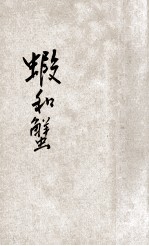 蝦和蟹